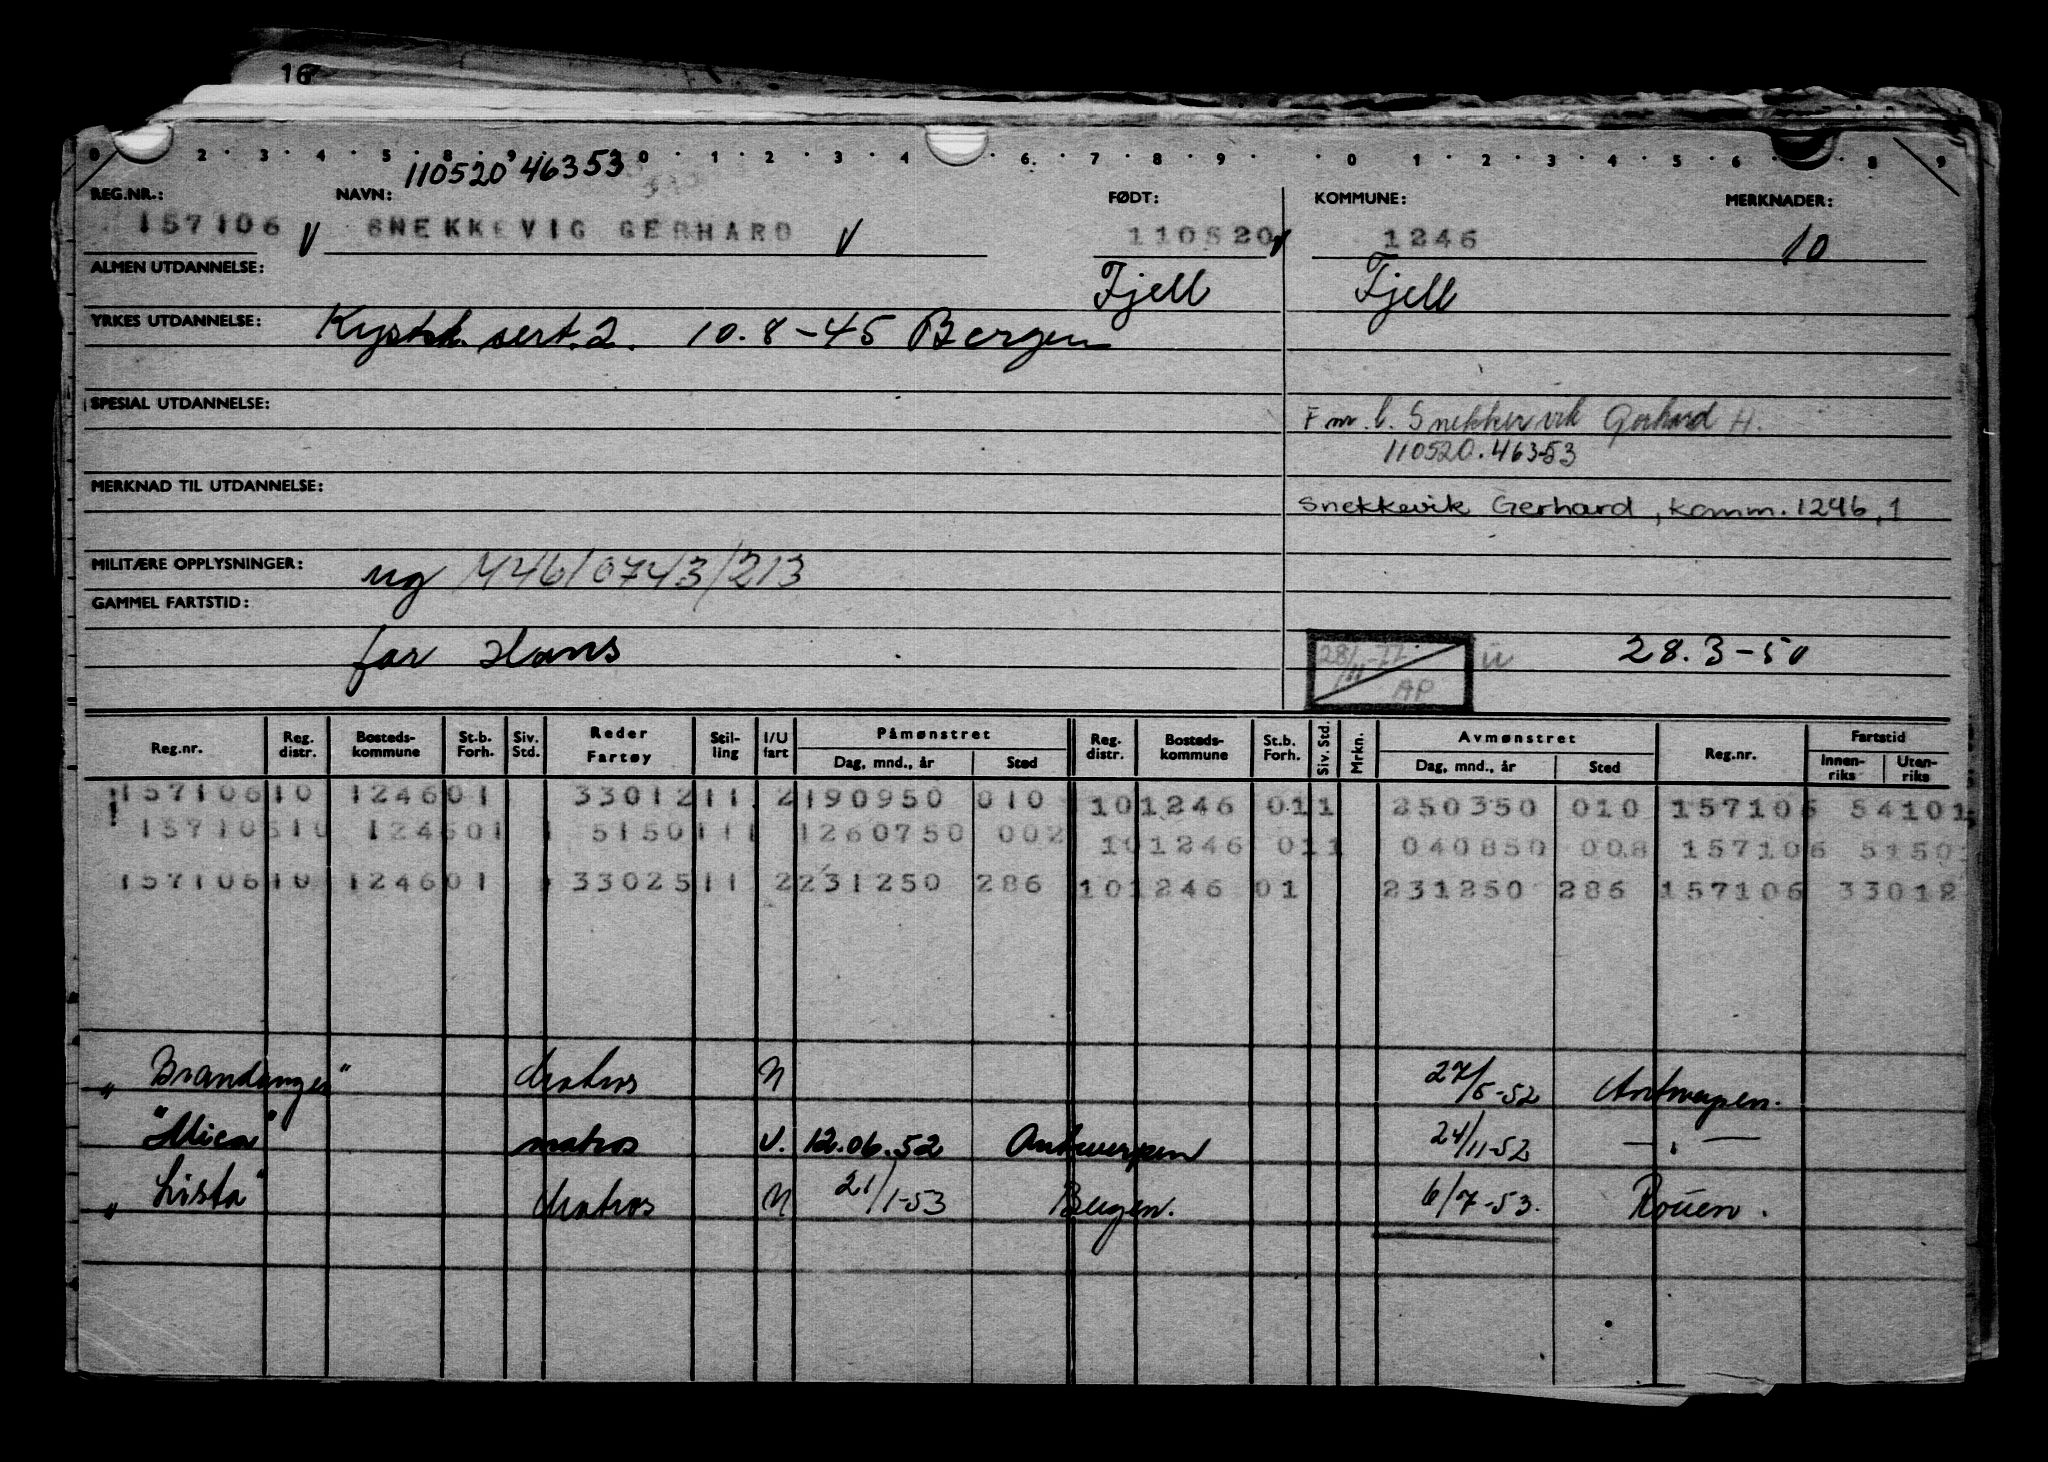 16
0 2 3 4 5 8 9 0 1 2 3 4 6 7 8 9 0 1 2 3 4 5 6 8 9
110520 46353
REG.NR.: NAVN: FØDT: KOMMUNE: MERKNADER:
157106 v SNEKKEVIG GERHARD v 110520 v 1246 10
ALMEN UTDANNELSE: Fjell Fjell
YRKES UTDANNELSE: Kystsk. sert. 2. 10.8-45 Bergen
SPESIAL UTDANNELSE:
F nr. b. Snekkevik Gerhard H.
110520.46353
MERKNAD TIL UTDANNELSE:
Snekkevik Gerhard, komm. 1246, 1
MILITÆRE OPPLYSNINGER: ug M46/0743/213
GAMMEL FARTSTID:
far Hans
28/11-77 AP u 28.3-50
Reg.nr. Reg. distr. Bosteds-kommune St.b. Forh. Siv. Std. Reder Fartøy Stil-ling I/U fart Påmønstret Dag, mnd., år Sted Reg. distr. Bosteds-kommune St.b. Forh. Siv. Std. Mrkn. Avmønstret Dag, mnd., år Sted Reg.nr. Fartstid Innen-riks Uten-riks
157106 10 1246 01 33012 11 2 190950 010 10 1246 01 1 250350 010 157106 54101
157106 10 1246 01 1 5150 111 1 260750 002 10 1246 01 1 040850 008 157106 5150
157106 10 1246 01 33025 11 2 231250 286 10 1246 01 231250 286 157106 33012
"Brandanger" Matros U 27/5-52 Antwerpen.
"Mica" matros U. 12.06.52 Antwerpen 24/11-52 — " —
"Lista" Matros U 21/1-53 Bergen. 6/7-53. Rouen.